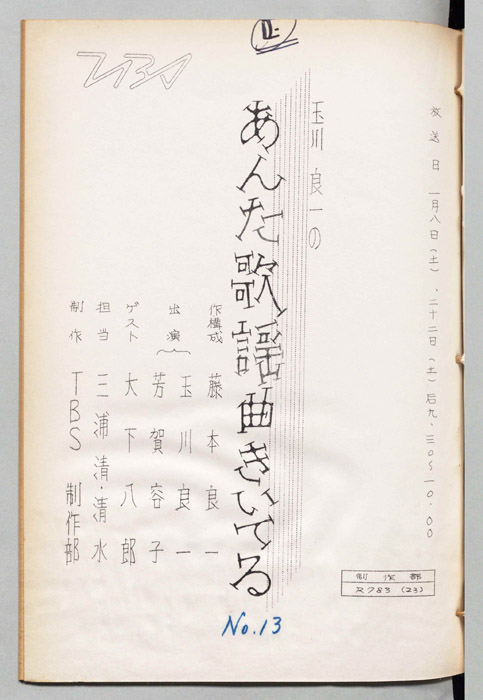 放送日 一月八日(土)、二十二日(土)后九、三〇〜一〇・〇〇
玉川良一の
あんた歌謡曲きいてる
作構成 藤本良一
出演 玉川良一
芳賀容子
ゲスト 大下八郎
担当 三浦清・清水
制作 TBS 制作部
TBS
制作部
R783 (23)
No.13